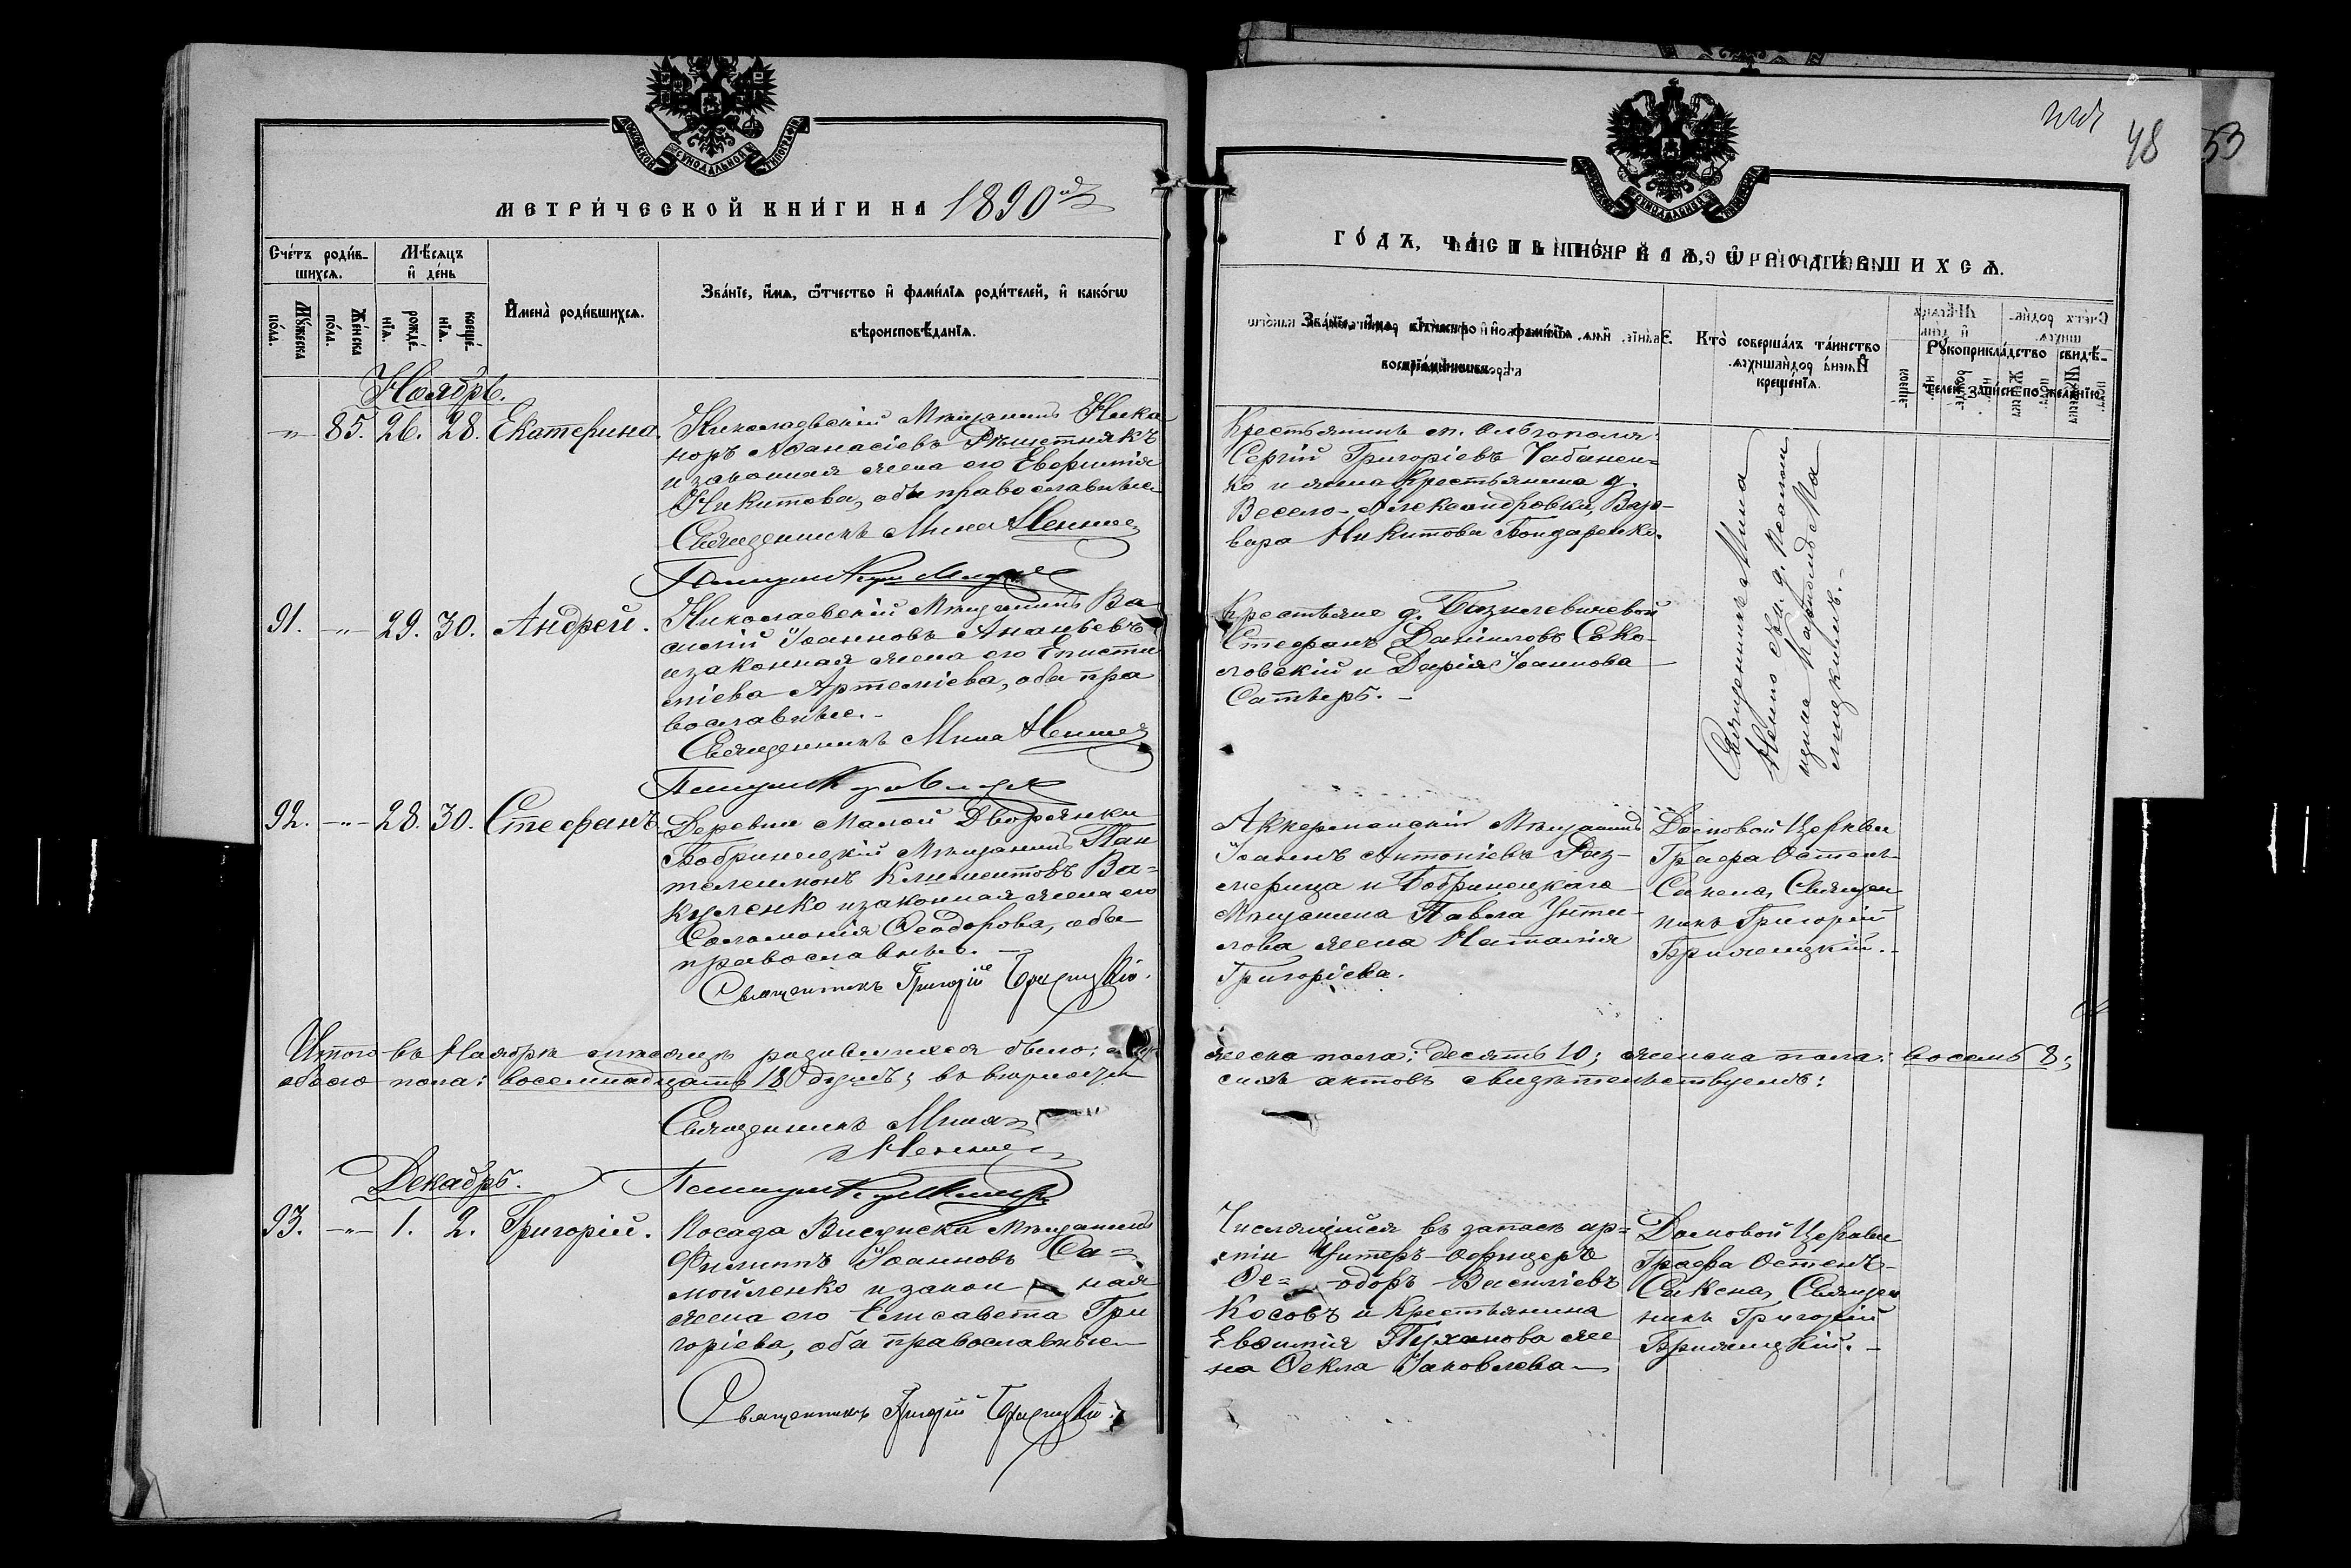 МЕТРИ́ЧЕСКОЙ КНИ́ГИ НА 1890й
Сче́тъ роди́вшихсѧ.
Мѣ́сѧцъ и҆ де́нь
Мꙋ́жеска по́ла.
Же́нска по́ла.
рожде́нїѧ.
креще́нїѧ.
И҆мена̀ роди́вшихсѧ.
Зва́нїе, и҆́мѧ, ѻ҆́тчество и҆ фами́лїѧ роди́телей, и҆ како́гѡ
вѣроисповѣ́данїѧ.
Ноябрь.
-"- 85. 26. 28. Екатерина.
Николаевскій Мѣщанинъ Ника
норъ Аѳанасіевъ Рѣшетнякъ
и законная жена его Евфимія
Никитова, оба православные
Священникъ Мина
91. -"- 29. 30. Андрей.
Николаевскій Мѣщанинъ Ва
силій Іоанновъ Ананьевъ
и законная жена его Еписти
мія Артеміева, оба пра
вославные.-
Священникъ Мина
92. -"- 28. 30. Стефанъ
Деревни Малой Дворянки
Бобринецкій Мѣщанинъ Пан
телеимонъ Климентовъ Ва=
куленко и законная жена его
Соломонія Ѳеодорова, оба
православные. -
Священникъ Григорій
Итого въ Ноябрѣ мѣсяцѣ родившихся было:
обоего пола: восемнадцать 18 душъ; въ вѣрности
Священникъ Мина
Декабрь.
93. -"- 1. 2. Григорій.
Посада Висунска Мѣщанинъ
Филиппъ Іоанновъ Са=
мойленко и закон ная
жена его Елисавета Гри
горіева, оба православные
Священникъ Григорій
48
53
ГО́ДЪ, ЧА́СТЬ ПЕ́РВАѦ, Ѡ҆ РОДИ́ВШИХСѦ.
Кто̀ соверша́лъ та́инство
креще́нїѧ.
Рꙋкоприкла́дство свидѣ́-
телей за́писи по жела́нїю.
Крестьянинъ м. Ольгополя
Сергій Григоріевъ Чабанен=
ко и жена Крестьянина д.
Весело-Александровки, Вар-
вара Никитова Бондаренко.
Священникъ Мина
Крестьяне д. Базилевичевой
Стефанъ Даніиловъ Соко-
ловскій и Дарія Іоаннова
Аккерманскій Мѣщанинъ
Іоаннъ Антоніевъ Раз-
мерица и Бобринецкаго
Мѣщанина Павла
жена Наталія
Григоріева.
Домовой Церкви
Графа Остенъ-
Сакена, Священ
никъ Григорій
жеска пола: десять 10; женска пола: восемь 8;
сихъ актовъ свидѣтельствуемъ:
Числящійся въ запасѣ ар=
міи Унтеръ-офицеръ
Ѳе= одоръ Василіевъ
Косовъ и Крестьянина
Евфимія Пуханова же
на Ѳекла Іаковлева
Домовой Церкви
Графа Остенъ-
Сакена, Священ
никъ Григорій